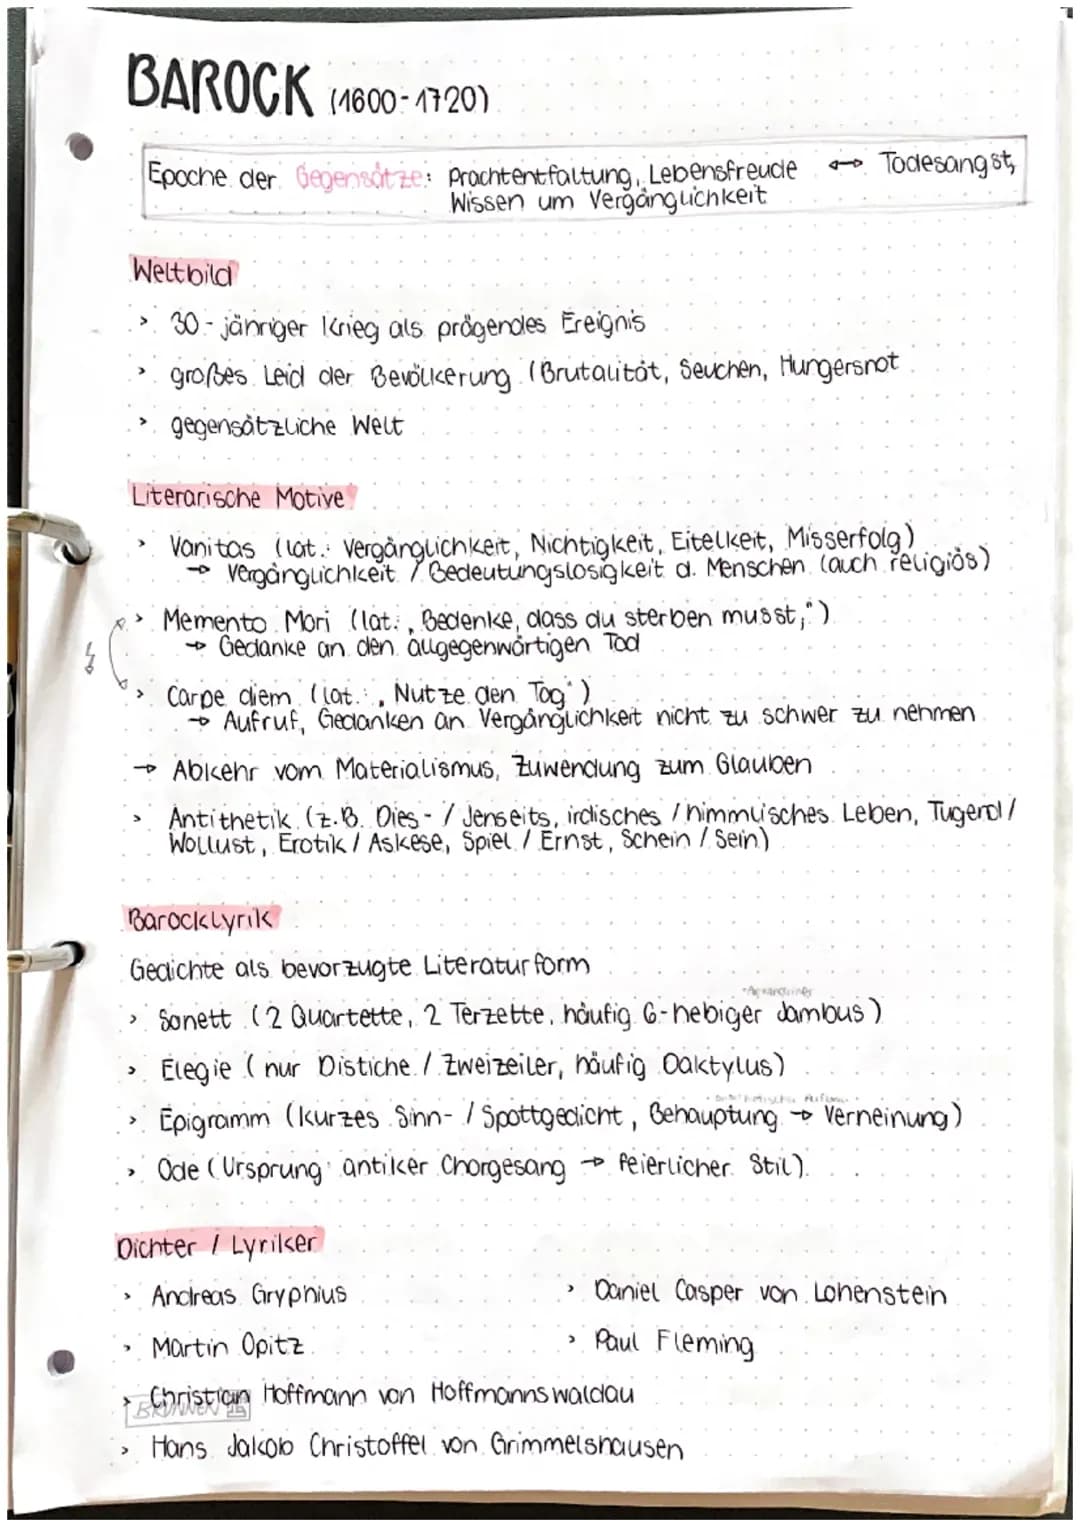 BAROCK (1600-1720)
Epoche der Gegensätze: Prachtentfaltung, Lebensfreude ↔ Todesangst,
Wissen um Vergänglichkeit
Weltbild
> 30-jähriger Krieg als prägendes Ereignis
> großes Leid der Bevölkerung (Brutalität, Seuchen, Hungersnot
> gegensätzliche Welt
Literarische Motive
> Vanitas (lat.: Vergänglichkeit, Nichtigkeit, Eitelkeit, Misserfolg)
→ Vergänglichkeit / Bedeutungslosigkeit d. Menschen (auch religiös)
> Memento Mori (lat.: „Bedenke, dass du sterben musst;")
→ Gedanke an den allgegenwärtigen Tod
> Carpe diem (lat.: „Nutze den Tag")
→ Aufruf, Gedanken an Vergänglichkeit nicht zu schwer zu nehmen
→ Abkehr vom Materialismus, Zuwendung zum Glauben
> Antithetik (z.B. Dies- / Jenseits, irdisches / himmlisches Leben, Tugend /
Wollust, Erotik / Askese, Spiel / Ernst, Schein / Sein)
Barocklyrik
Gedichte als bevorzugte Literaturform
> Sonett (2 Quartette, 2 Terzette, häufig 6-hebiger Jambus)
> Elegie (nur Distiche / Zweizeiler, häufig Daktylus)
> Epigramm (kurzes Sinn- / Spottgedicht, Behauptung → Verneinung)
> Ode (Ursprung antiker Chorgesang → feierlicher Stil)
Dichter / Lyriker
> Andreas Gryphius
> Daniel Casper von Lohenstein
> Martin Opitz
> Paul Fleming
> Christian Hoffmann von Hoffmannswaldau
BRUNNEN
> Hans Jakob Christoffel von Grimmelshausen